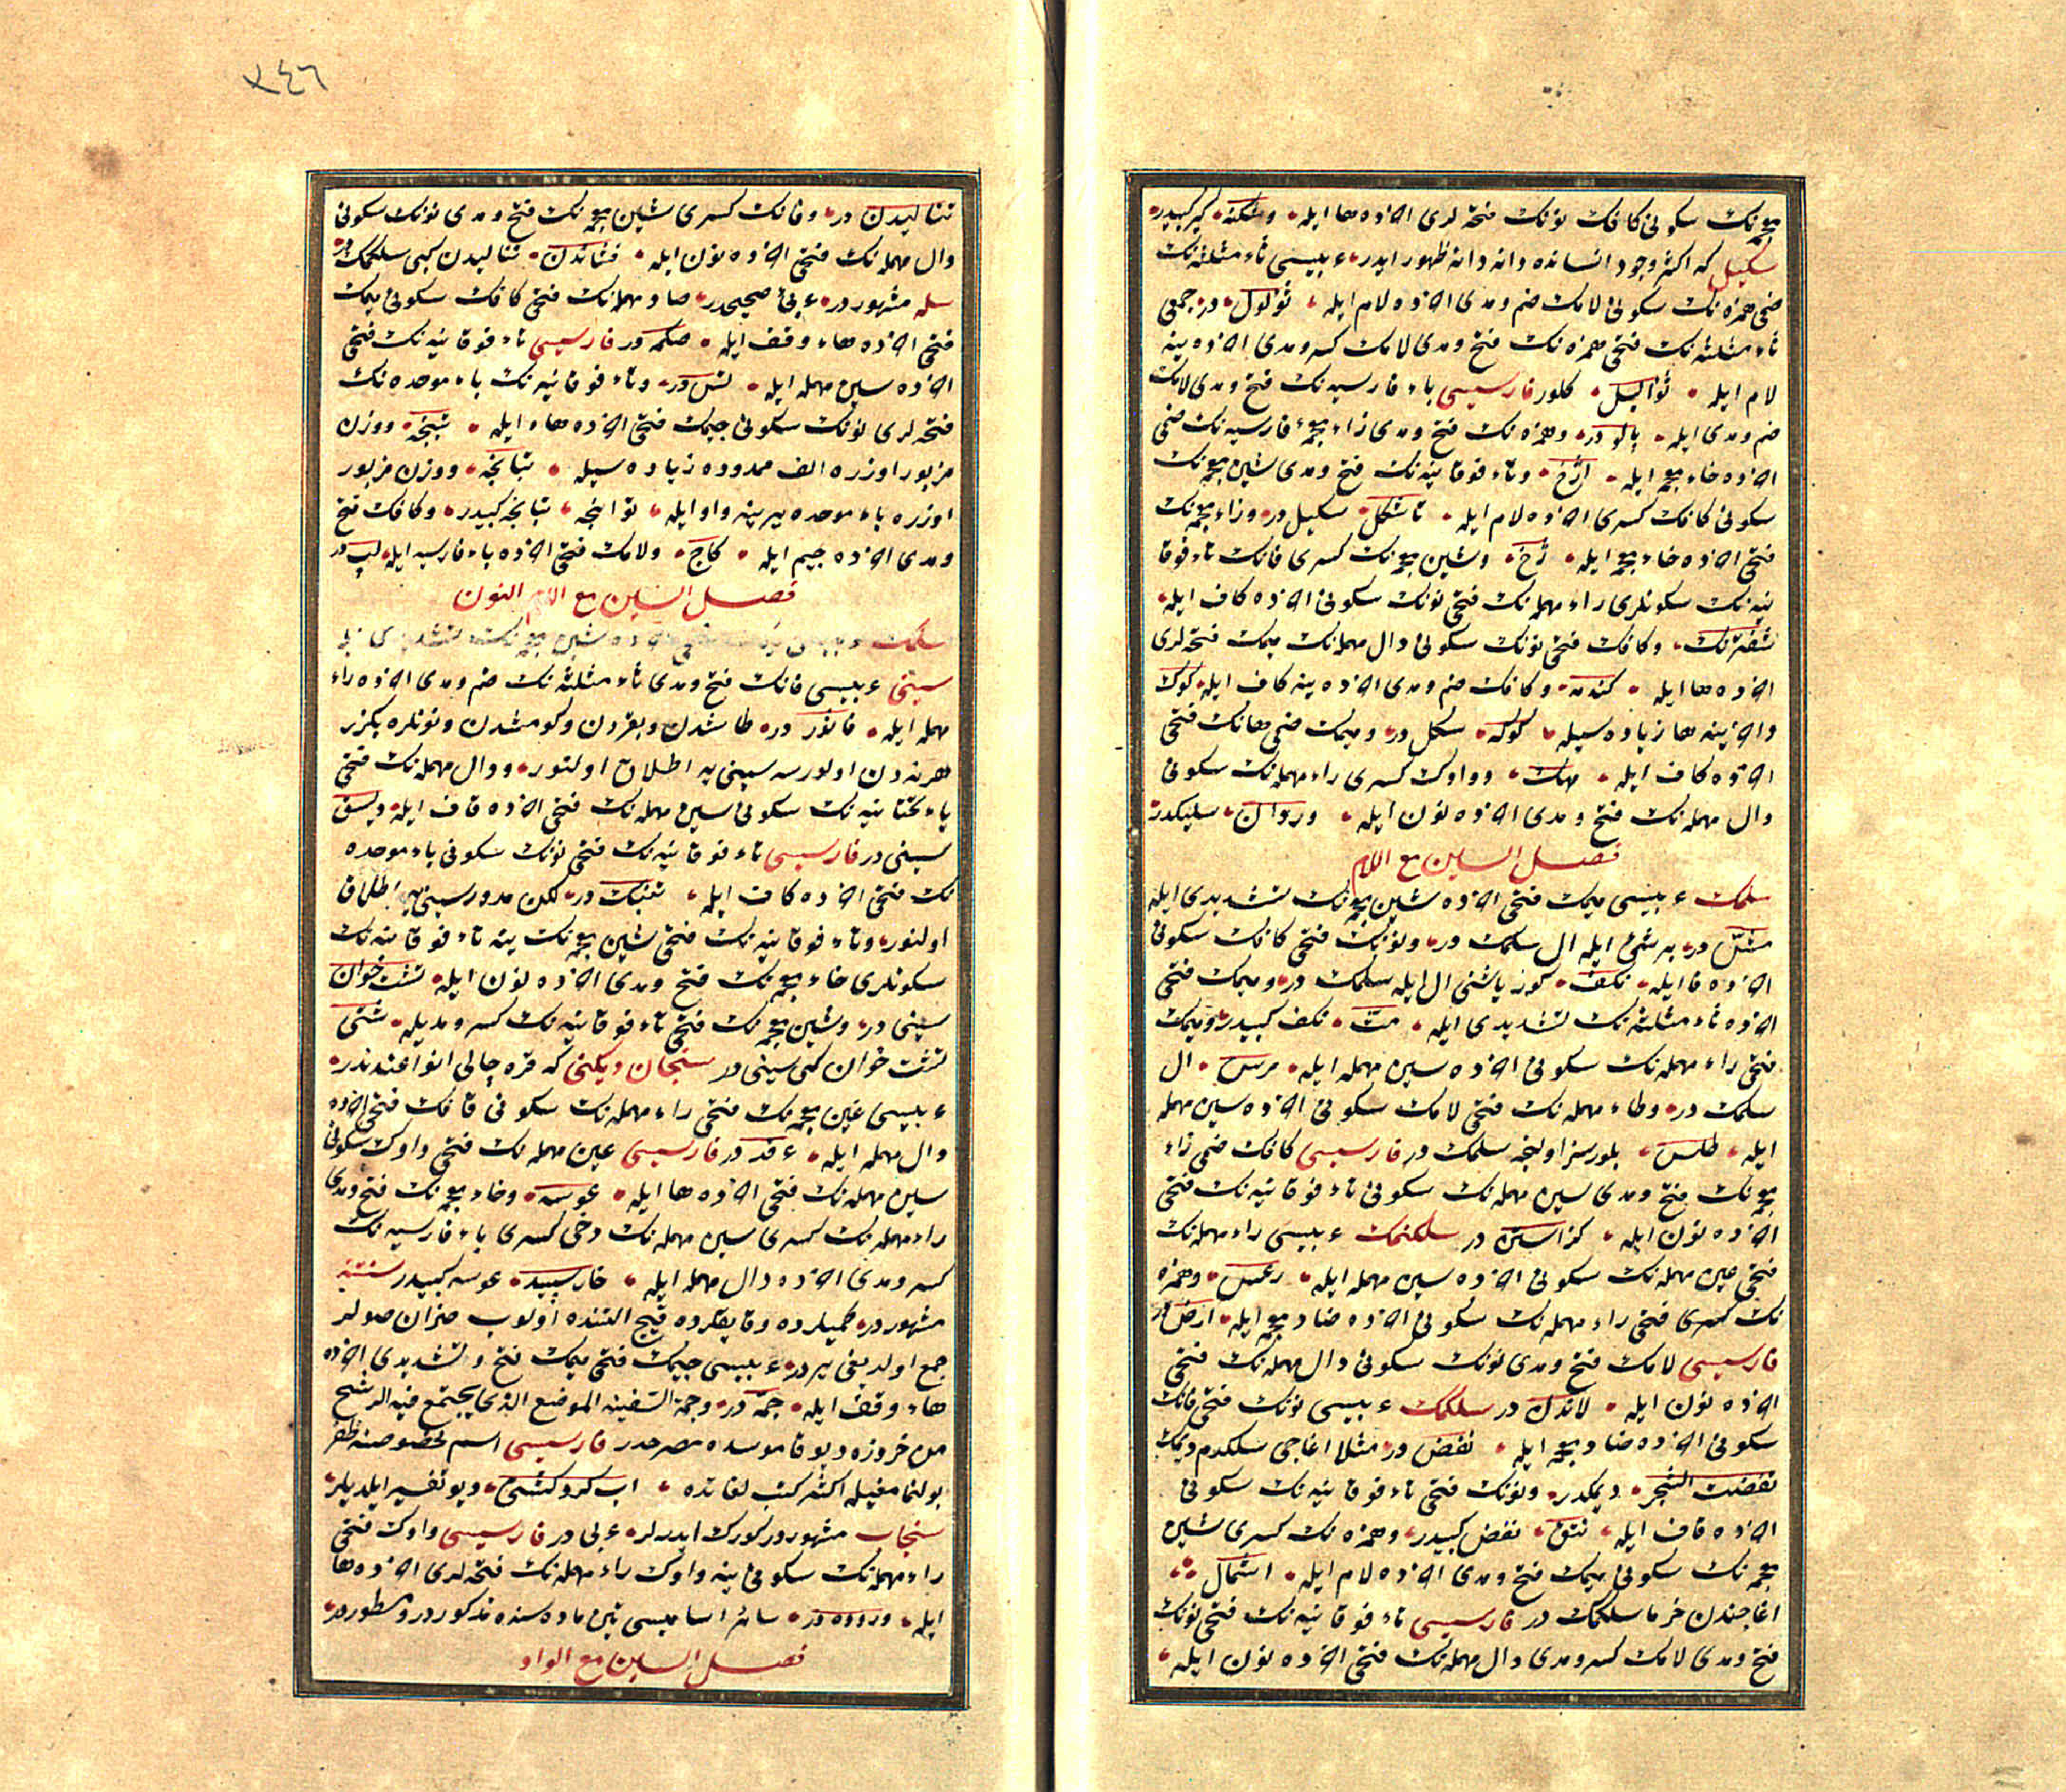 معجمه‌نك سكونى كافك نونك فتحه‌لرى آخرده ها ايله وشكنه كير كبيدر
سكيل كه اكثر وجود انسانده دانه دانه ظهور ايدر عربيسى ثاء مثلثه‌نك
ضمى همزه‌نك سكونى لامك ضم ومدى آخرده لام ايله ثؤلول در جمعى
ثاء مثلثه‌نك فتحى همزه‌نك فتح ومدى لامك كسر ومدى آخرده ينه
لام ايله ثواليل كلور فارسيسى باء فارسيه‌نك فتح ومدى لامك
ضم ومدى ايله بالو در وهمزه‌نك فتح ومدى زاء معجمهٔ فارسيه‌نك ضمى
آخرده خاء معجمه ايله آژخ وتاء فوقانيه‌نك فتح ومدى شين معجمه‌نك
سكونى كافك كسرى آخرده لام ايله تاشكل سكيل در وزاء معجمه‌نك
فتحى آخرده خاء معجمه ايله زخ وشين معجمه‌نك كسرى فانك تاء فوقا
نيه‌نك سكونلرى راء مهمله‌نك فتحى نونك سكونى آخرده كاف ايله
شفترنك وكافك فتحى نونك سكونى دال مهمله‌نك ميمك فتحه‌لرى
آخرده ها ايله كندمه وكافك ضم ومدى آخرده ينه كاف ايله كوك
وآخرينه ها زياده سيله كوكه سكل در وميمك ضمى هانك فتحى
آخرده كاف ايله مهك وواوك كسرى راء مهمله‌نك سكونى
دال مهمله‌نك فتح ومدى آخرده نون ايله وردان سليكدر
فصل السين مع اللام
سلمك عربيسى ميمك فتحى آخرده شين معجمه‌نك تشديدى ايله
مشّ در بر شئ ايله ال سلمك در ونونك فتحى كافك سكونى
آخرده فا ايله نكف كوز ياشنى ال ايله سلمك در وميمك فتحى
آخرده ثاء مثلثه‌نك تشديدى ايله مثّ نكف كبيدر وميمك
فتحى راء مهمله‌نك سكونى آخرده سين مهمله ايله مرس ال
سلمك در وطاء مهمله‌نك فتحى لامك سكونى آخرده سين مهمله
ايله طلس بلورسز اولنجه سلمك در فارسيسى كافك ضمى زاء
معجمه‌نك فتح ومدى سين مهمله‌نك سكونى تاء فوقانيه‌نك فتحى
آخرده نون ايله كزاستن در سلكنمك عربيسى راء مهمله‌نك
فتحى عين مهمله‌نك سكونى آخرده سين مهمله ايله رعس وهمزه
نك كسرى فتحى راء مهمله‌نك سكونى آخرده ضاد معجمه ايله ارض در
فارسيسى لامك فتح ومدى نونك سكونى دال مهمله‌نك فتحى
آخرده نون ايله لاندن در سلكمك عربيسى نونك فتحى فانك
سكونى آخرده ضاد معجمه ايله نفض در مثلا اغاجى سلكدم ديمك
نفضت الشجر ديمكدر ونونك فتحى تاء فوقانيه‌نك سكونى
آخرده قاف ايله نتق نفض كبيدر وهمزه‌نك كسرى شين
معجمه‌نك سكونى ميمك فتح ومدى آخرده لام ايله اشمال
اغاجندن خرما سلكمك در فارسيسى تاء فوقانيه‌نك فتحى نونك
فتح ومدى لامك كسر ومدى دال مهمله‌نك فتحى آخرده نون ايله
٢٤٦
تناليدن در وفانك كسرى شين معجمه‌نك فتح ومدى نونك سكونى
دال مهمله‌نك فتحى آخرده نون ايله فشاندن تناليدن كبى سلكمك در
سله مشهور در عربئ صحيحدر صاد مهمله‌نك فتحى كافك سكونى ميمك
فتحى آخرده هاء وقف ايله صكمه در فارسيسى تاء فوقانيه‌نك فتحى
آخرده سين مهمله ايله تس در وتاء فوقانيه‌نك باء موحده‌نك
فتحه‌لرى نونك سكونى جيمك فتحى آخرده هاء ايله تبنجه ووزن
مزبور اوزره الف ممدوده زياده سيله تبانجه ووزن مزبور
اوزره باء موحده يرينه واو ايله توانجه تبانجه كبيدر وكافك فتح
ومدى آخرده جيم ايله كاج ولامك فتحى آخرده باء فارسيه ايله لپ در
فصل السين مع النون
سينى عربيسى فانك فتح ومدى ثاء مثلثه‌نك ضم ومدى آخرده راء
مهمله ايله فاثور در طاشدن وبقردن وكومشدن وبونلره بكزر
هر نه‌دن اولورسه سينى يه اطلاق اولنور ودال مهمله‌نك فتحى
ياء تحتانيه‌نك سكونى سين مهمله‌نك فتحى آخرده قاف ايله ديسق
سينى در فارسيسى تاء فوقانيه‌نك فتحى نونك سكونى باء موحده
نك فتحى آخرده كاف ايله تنبك در لكن مدور سينى يه اطلاق
اولنور وتاء فوقانيه‌نك فتحى شين معجمه‌نك ينه تاء فوقانيه‌نك
سكونلرى خاء معجمه‌نك فتح ومدى آخرده نون ايله تشت خوان
سينى در وشين معجمه‌نك فتحى تاء فوقانيه‌نك كسر ومديله شتى
تشت خوان كبى سينى در سنجان ديكنى كه قره چالى انواعندندر
عربيسى غين معجمه‌نك فتحى راء مهمله‌نك سكونى قافك فتحى آخرده
دال مهمله ايله غرقد در فارسيسى عين مهمله‌نك فتحى واوك سكونى
سين مهمله‌نك فتحى آخرده ها ايله عوسه وخاء معجمه‌نك فتح ومدى
راء مهمله‌نك كسرى سين مهمله‌نك دخى كسرى باء فارسيه‌نك
كسر ومدى آخرده دال مهمله ايله خارسپيد عوسه كبيدر سنتنه
مشهور در كميلرده وقايقلرده قيچ التنده اولوب صزان صولر
جمع اولديغى يردر عربيسى جيمك فتحى ميمك فتح وتشديدى آخرده
هاء وقف ايله جمّه در وجمة السفينه الموضع الذى يجتمع فيه الرشح
من خروزه ديو قاموسده مصرحدر فارسيسى اسم مخصوصنه ظفر
بولنمامغيله اكثر كتب لغاتده آب كردكشتى ديو تفسير ايلديلر
سنجاب مشهور در كورك ايدرلر عربى در فارسيسى واوك فتحى
راء مهمله‌نك سكونى ينه واوك راء مهمله‌نك فتحه‌لرى آخرده ها
ايله وروره در سائر اساميسى تين ماده‌سنده مذكور در ومسطور در
فصل السين مع الواو